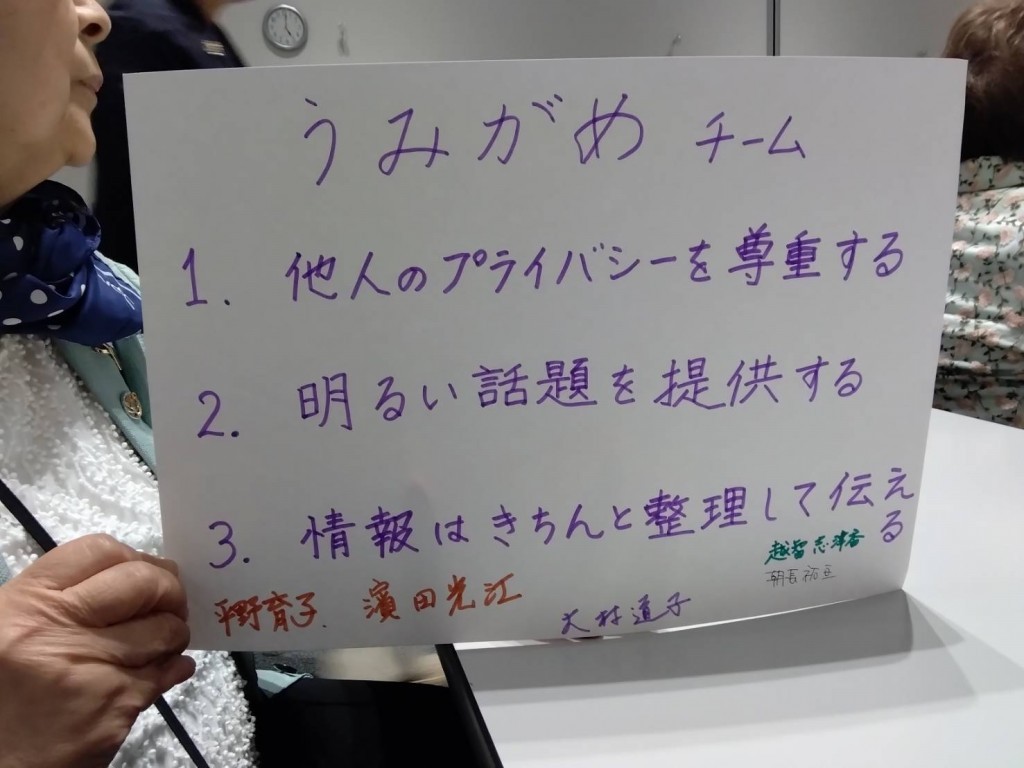 うみがめ チーム
1. 他人のプライバシーを尊重する
2. 明るい話題を提供する
3. 情報はきちんと整理して伝える
越智志津香
朝長祐豆
平野育子. 濱田光江
大村道子